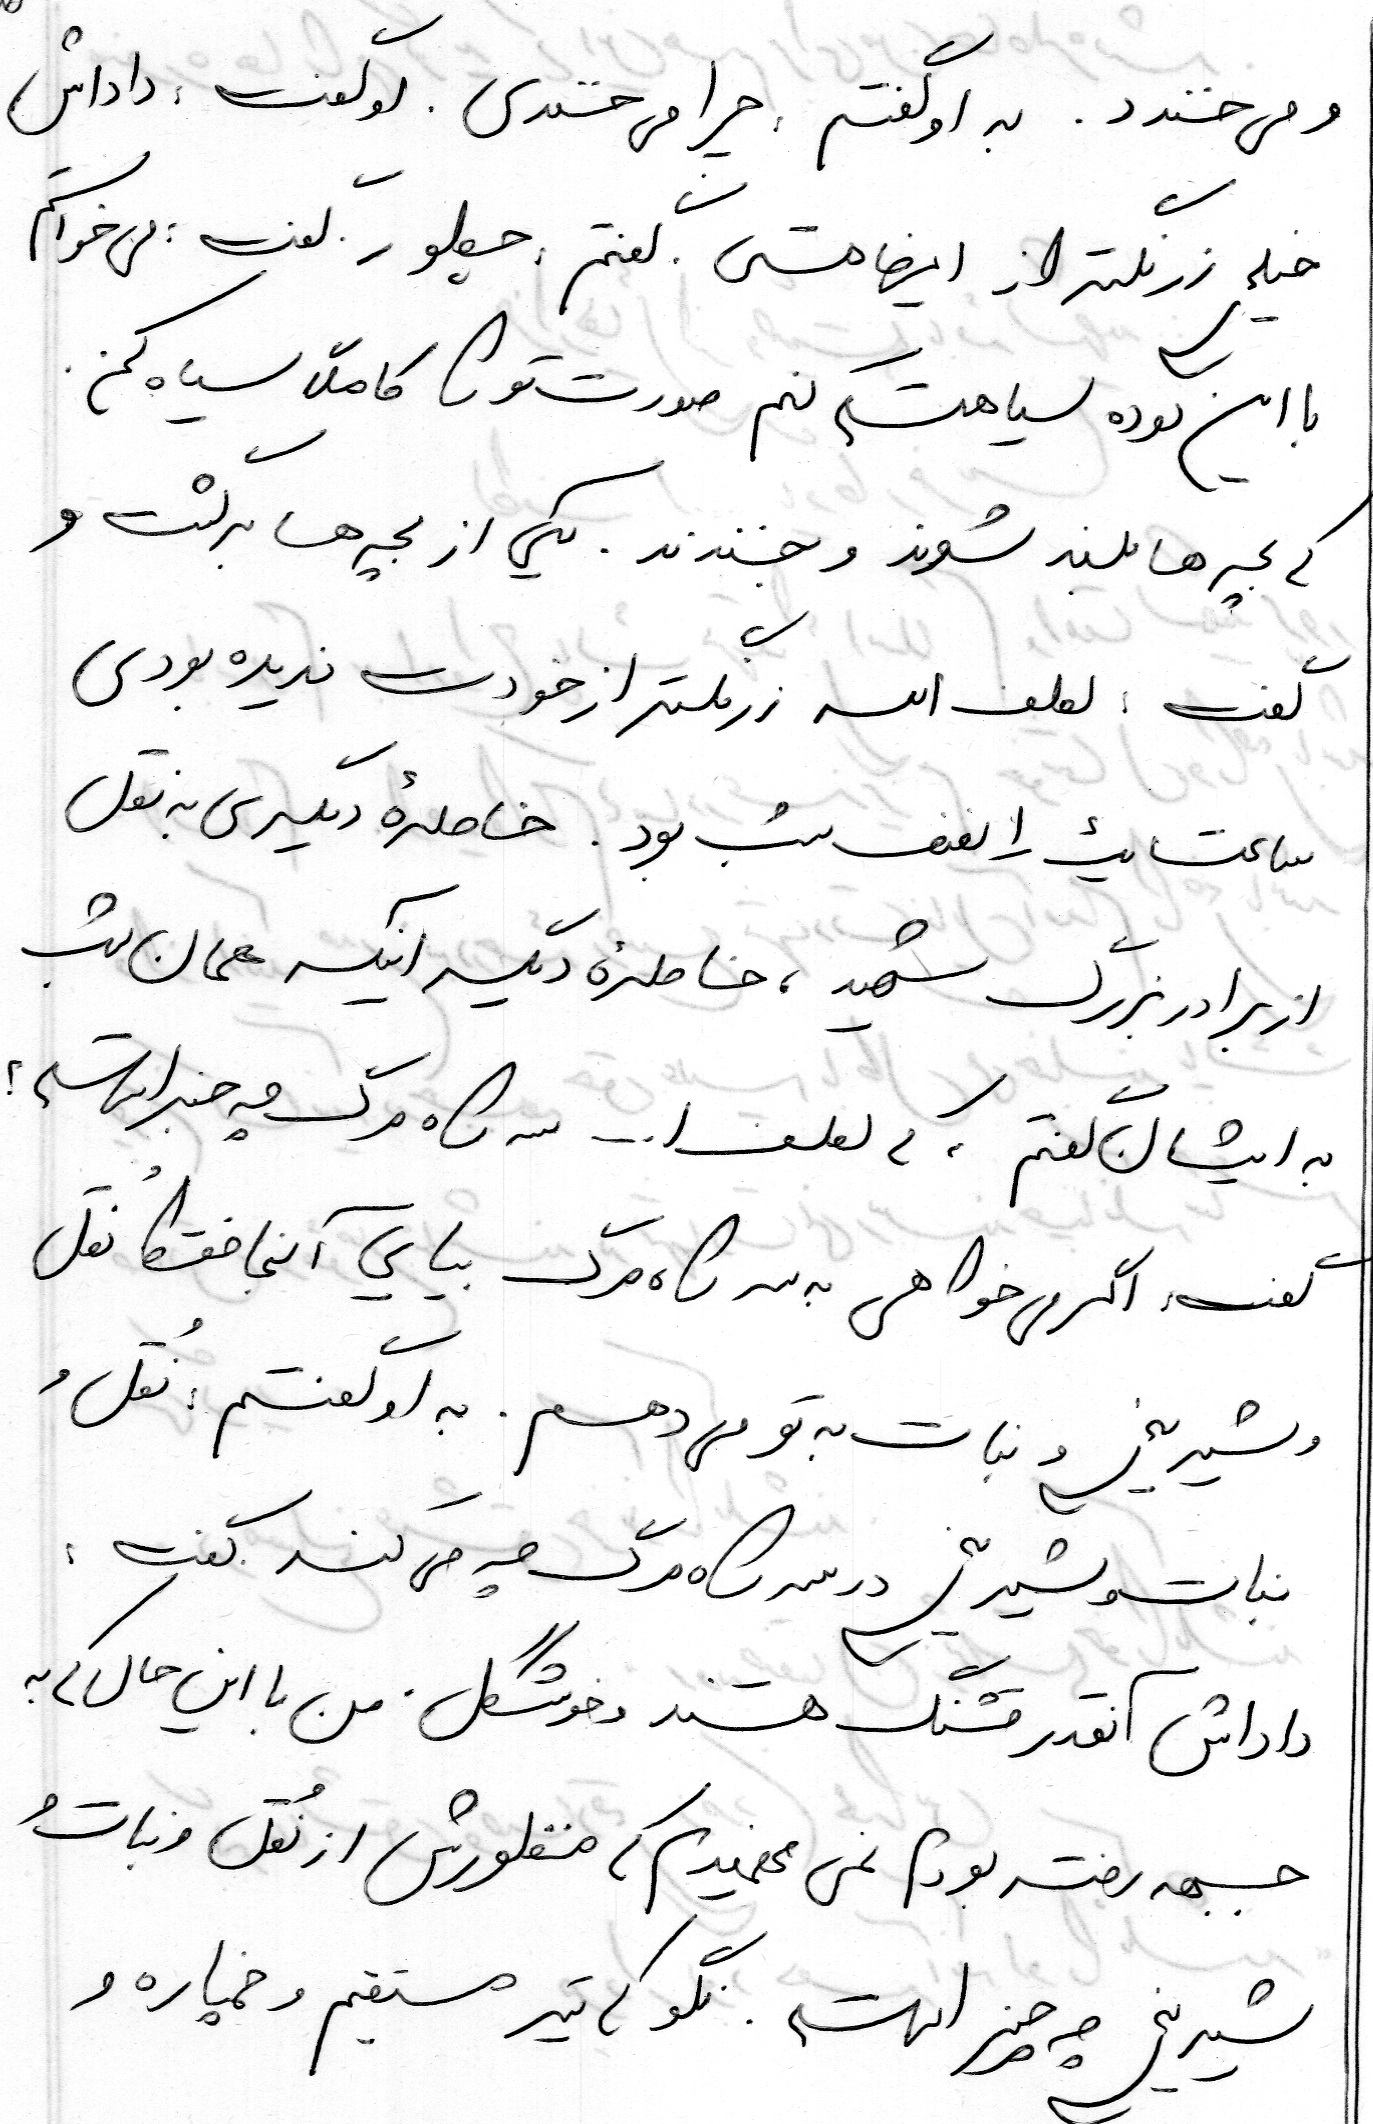 و می خندد. به او گفتم، چرا می خندی. او گفت: داداش
خیلی زرنگتر از اینها هستی. گفتم: چطور. گفت: می خواستم
با این دوده سیاهت کنم صورت تو را کاملاً سیاه کنم.
که بچه ها بلند شوند و بخندند. یکی از بچه ها برگشت و
گفت: لطف اله زرنگتر از خودت ندیده بودی
ساعت یک را نصف شب بود. خاطرۀ دیگری به نقل
از برادر بزرگ شهید، خاطرۀ دیگر اینکه همان شب
به ایشان گفتم، که لطف ا... سه راه مرگ چه خبر است؟
گفت: اگر می خواهی به سه راه مرگ بیایی آنجا فقط نُقل
و شیرینی و نبات به تو می دهم. به او گفتم: نُقل و
نبات و شیرینی در سه راه مرگ چه می کند. گفت:
داداش آنقدر قشنگ هستند و خوشگل. من با این حال که به
جبهه رفته بودم نمی فهمیدم که منظورش از نُقل و نبات و
شیرینی چه چیز است. نگو که تیر مستقیم و خمپاره و